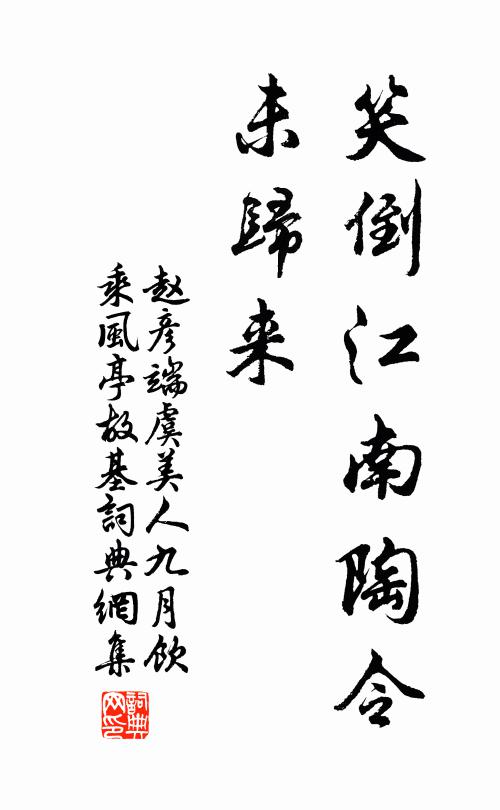 笑倒江南陶令
未歸来
赵彦端虞美人九月飲
乘風亭故基詞典網集
詞典
网印